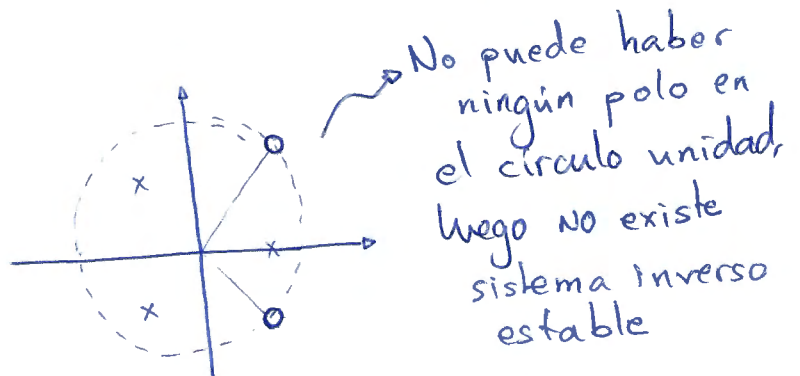 No puede haber
ningún polo en
el círculo unidad,
luego NO existe
sistema inverso
estable